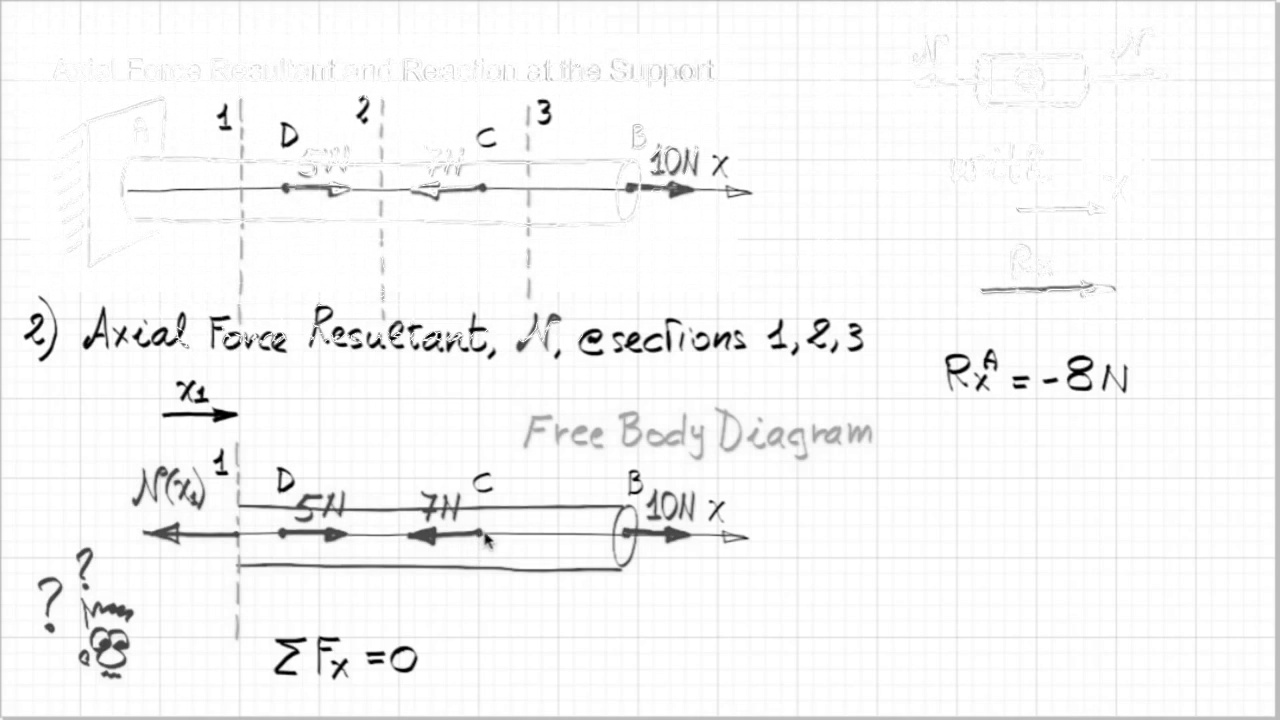 Axial Force Resultant and Reaction at the Support
N N
1 2 3
A D C B
5N 7N 10N x
with x
Rx
2) Axial Force Resultant, N, @sections 1, 2, 3
RxA = -8N
x1
Free Body Diagram
1 D C B
N(x1) 5N 7N 10N x
? ?
ΣFx = 0